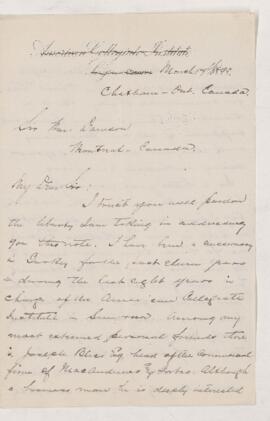 American Collegiate Institute
Smyrna March 17 1890.
Chatham - Ont. Canada.
Sir Wm. Dawson
Montreal - Canada.
My Dear Sir:
I trust you will pardon
the liberty I am taking in addressing
you this note. I have been a missionary
in Turkey for the past eleven years
& during the last eight years in
charge of the American Collegiate
Institute in Smyrna. Among my
most esteemed personal friends there
is Joseph Bliss Esq head of the commercial
firm of MacAndrews & Forbes. Although
a business man he is deeply interested